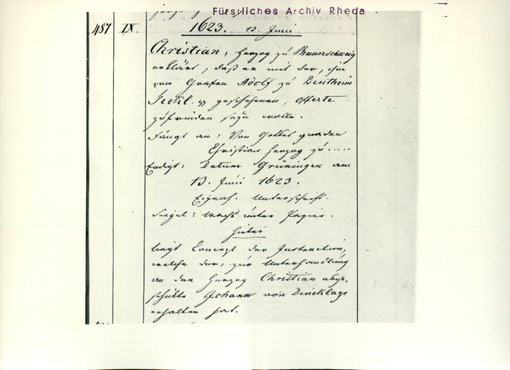 Fürstliches Archiv Rheda
487 IX. 1623. 13. Juni
Christian, Herzog zu Braunschweig
erklärt, daß er mit der, ihm
vom Grafen Adolf zu Bentheim
Teckl. geschehenen, Offerte
zufrieden seyn wolle.
Fängt an: Von Gottes gnaden
Christian Herzog zu .....
Endigt: Datum Grüningen am
13. Juni 1623.
Eigenh. Unterschrift.
Siegel: wachs unter Papier.
Hiebei
liegt Concept der Instruction,
welche der, zur Unterhandlung
an den Herzog Christian abge-
schickte Johann von Dincklage
erhalten hat.